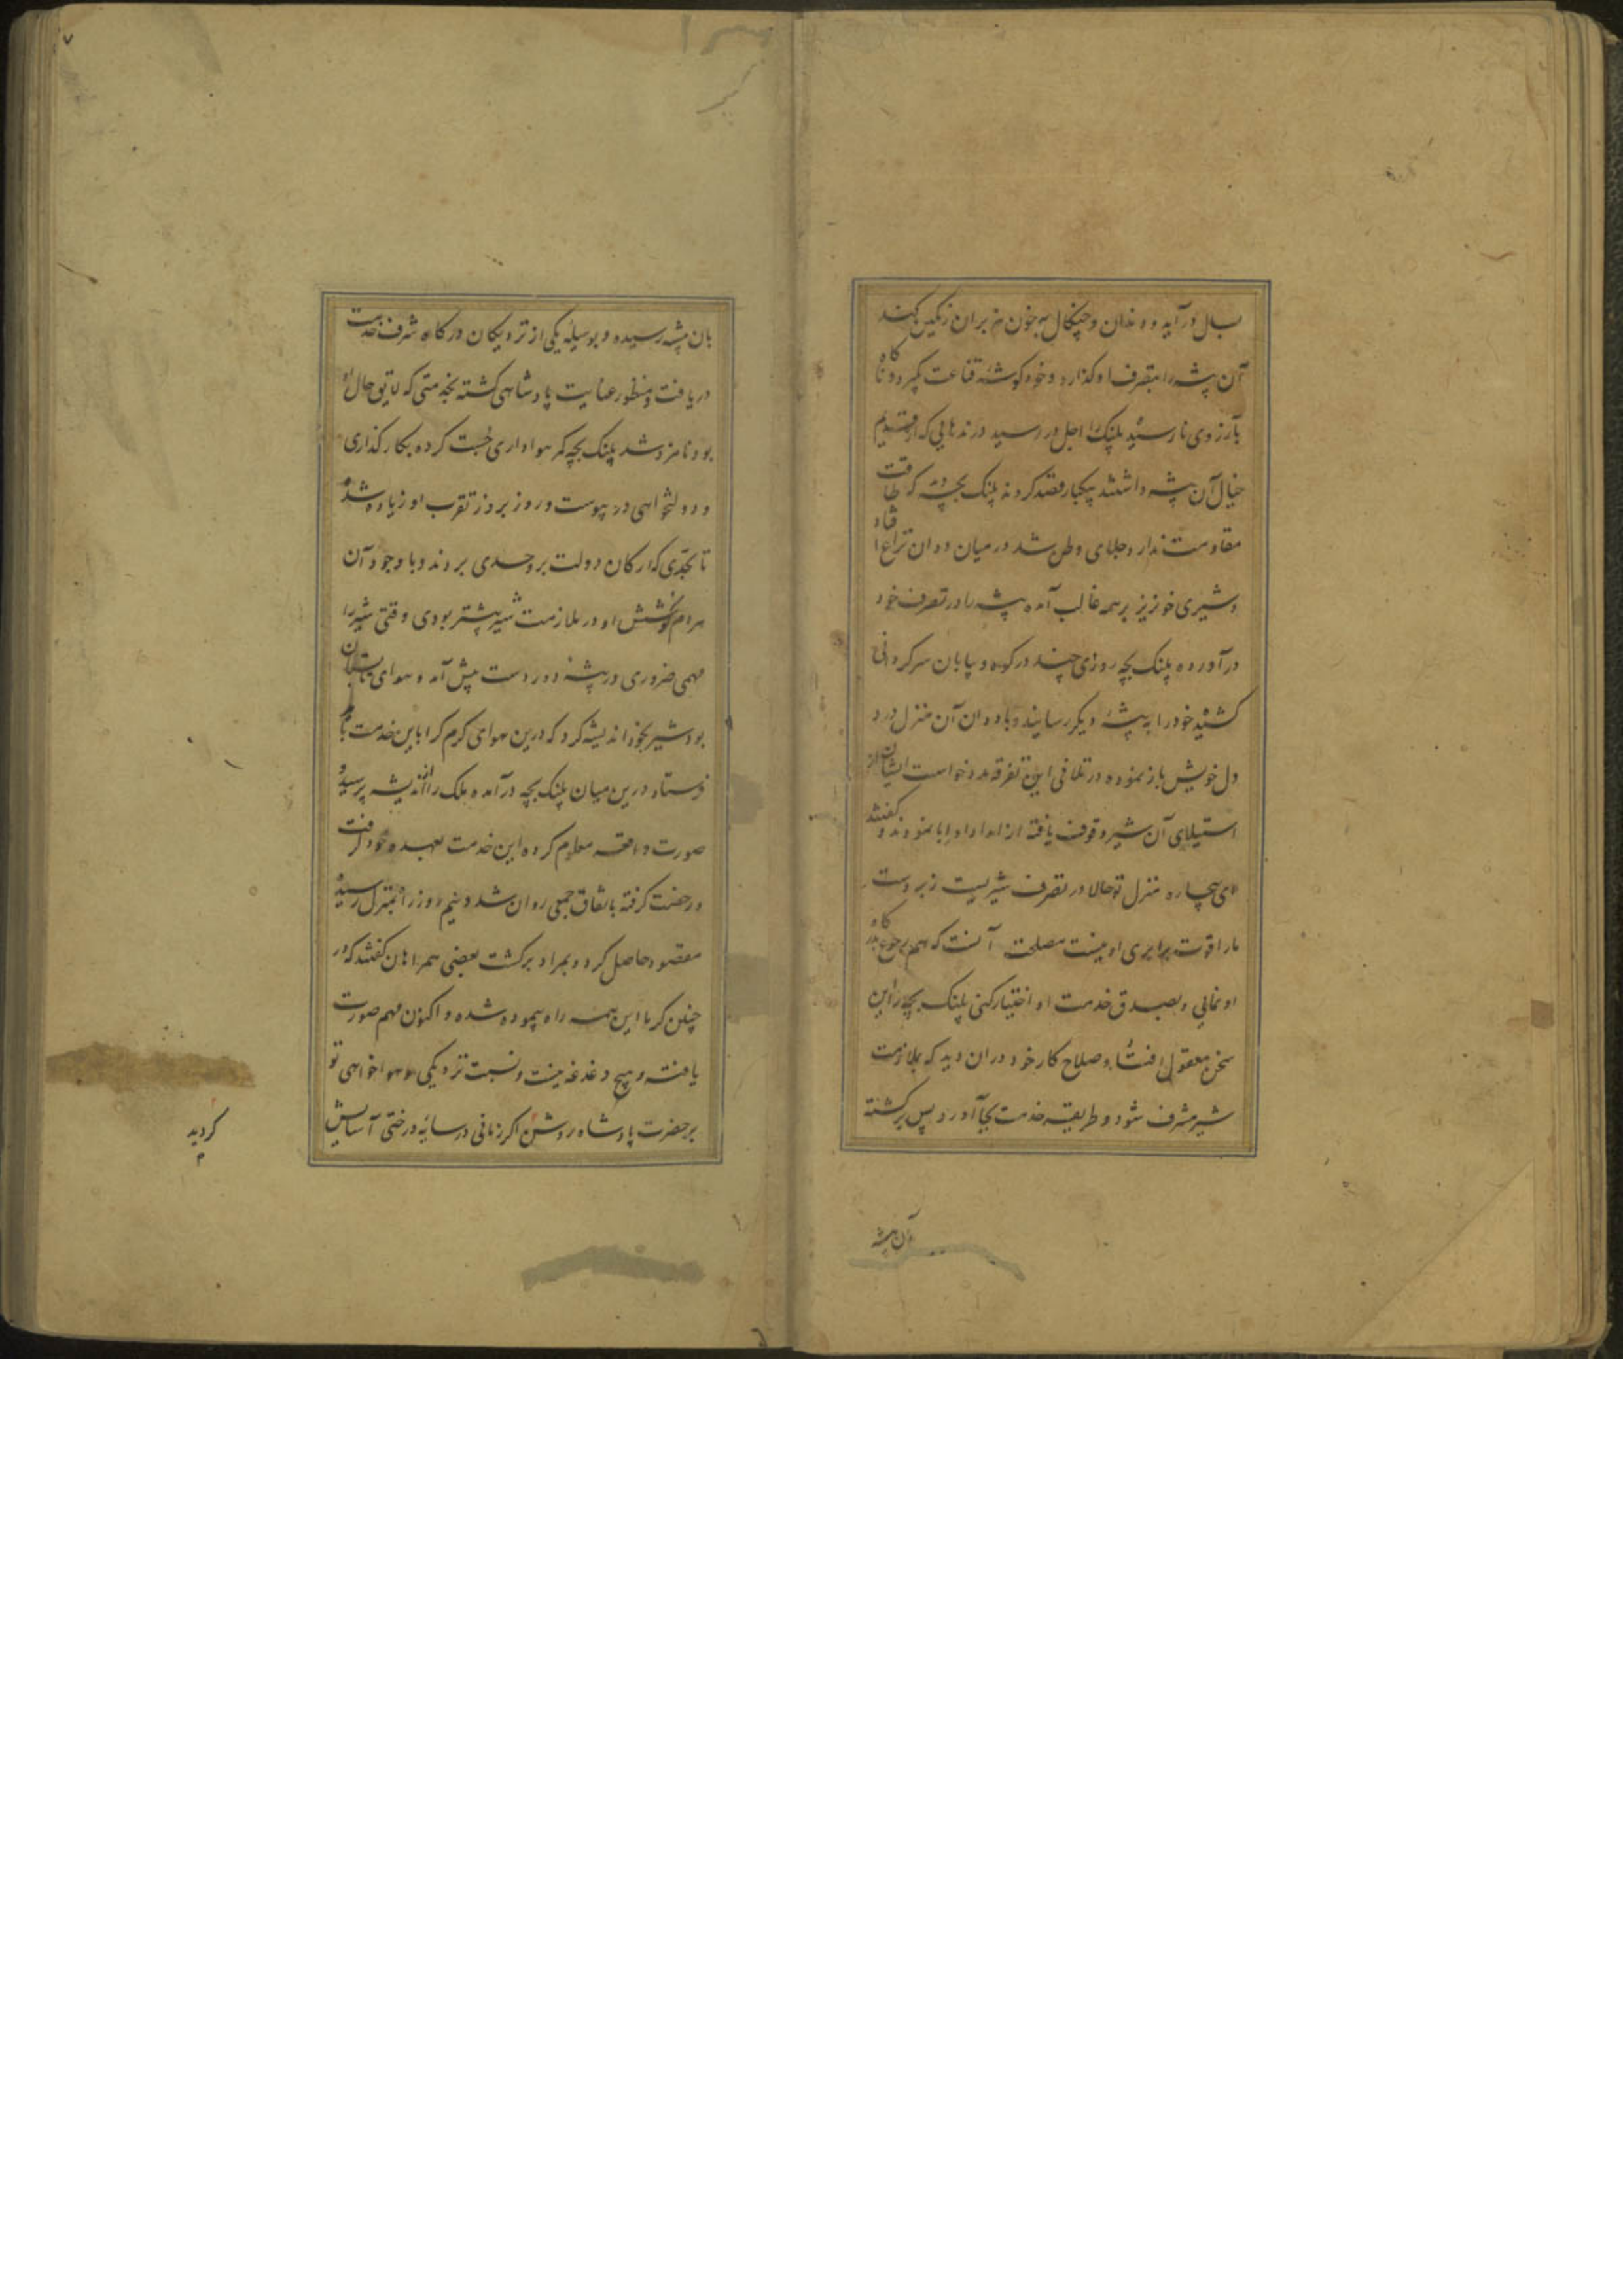 بسال درآید و دندان و چنکال به خون هزبران رنکین کند
آن بیشه را بتصرف او کذارد و خود کوشهٔ قناعت کیرد و ناکاه
بآرزوی نارسیده پلنک را اجل در رسید درندهایی که از قدیم
خیال آن بیشه داشتند یکبار قصد کردند پلنک بچه دید که طاقت
مقاومت ندارد جلای وطن شد در میان ددان نزاع افتاد
و شیری خونریز بر همه غالب آمده بیشه را در تصرف خود
درآورده پلنک بچه روزی چند در کوه و بیابان سرکردانی
کشیده خود را به بیشهٔ دیکر رسانید و با ددان آن منزل درد
دل خویش باز نموده در تلافی این تفرقه مدد خواست ایشان از
استیلای آن شیر وقوف یافته از امداد او ابا نمودند و کفتند
ای بیچاره منزل تو حالا در تصرف شیریست زبردست
ما را قوت برابری او نیست مصلحت آنست که هم رجوع بدرکاه
او نمایی و بصدق خدمت او اختیار کنی پلنک بچه را این
سخن معقول افتاد و صلاح کار خود در آن دید که بملازمت
شیر مشرف شود و طریقه خدمت بجا آورد پس برکشته
آن بیشه
بان بیشه رسیده و بوسیلهٔ یکی از نزدیکان درکاه شرف خدمت
دریافت و منظور عنایت پادشاهی کشته بخدمتی که لایق حال او
بود نامزد شد پلنک بچه کمر هواداری چست کرده بکار کذاری
و دولتخواهی در پیوست و روز بروز تقرب او زیاده شد
تا بحدی که ارکان دولت برو حسدی بردند و با وجود آن
هر دم کوشش او در ملازمت شیر بیشتر بودی وقتی شیر را
مهمی ضروری در بیشهٔ دوردست پیش آمد و هوای تابستان
بود شیر بخود اندیشه کرد که درین هوای کرم کرا باین خدمت باید
فرستاد درین میان پلنک بچه درآمده ملک را از اندیشه پرسید و
صورت واقعه معلوم کرده این خدمت بعهده خود کرفت
و رخصت کرفته باتفاق جمعی روان شد و نیم روز را بمنزل رسیده
مقصود حاصل کرد و بمراد برکشت بعضی همراهان کفتند که در
چنین کرما این همه راه پیموده شده و اکنون مهم صورت
یافته و هیچ دغدغه نیست و نسبت نزدیکی و هواخواهی تو
بر حضرت پادشاه روشن اکر زمانی در سایهٔ درختی آسایش
کردید